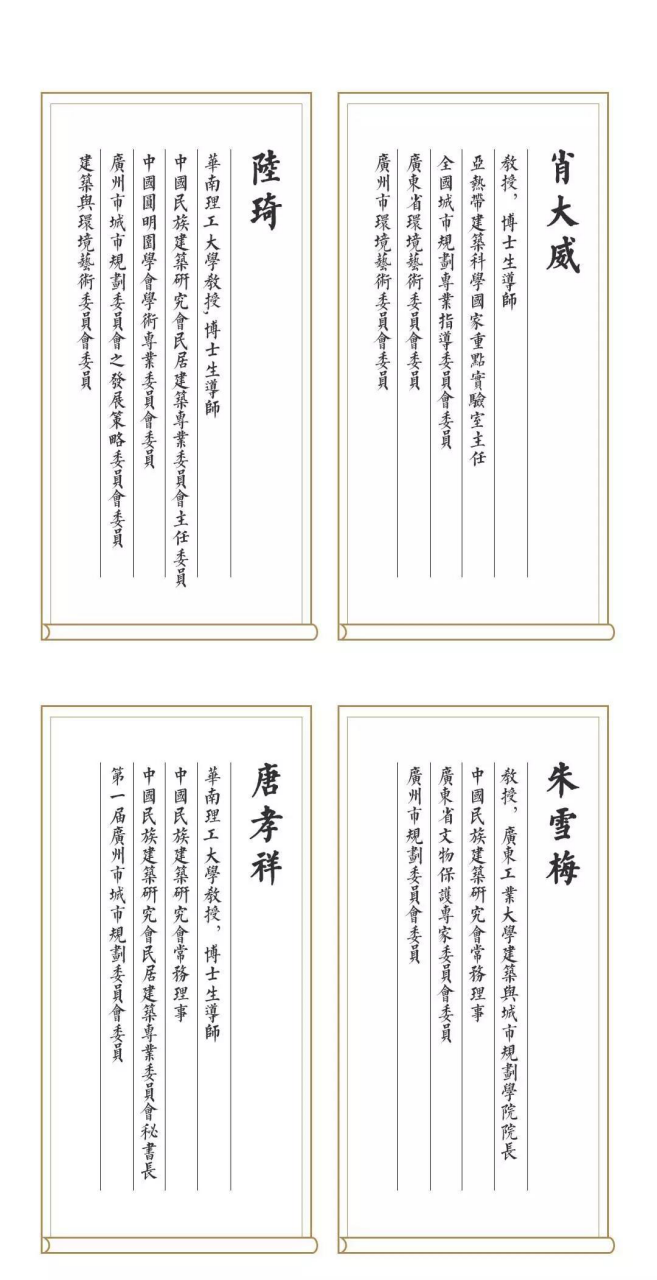 肖大威
教授，博士生導師
亞熱帶建築科學國家重點實驗室主任
全國城市規劃專業指導委員會委員
廣東省環境藝術委員會委員
廣州市環境藝術委員會委員
陸琦
華南理工大學教授,博士生導師
中國民族建築研究會民居建築專業委員會主任委員
中國圓明園學會學術專業委員會委員
廣州市城市規劃委員會之發展策略委員會委員
建築與環境藝術委員會委員
朱雪梅
教授，廣東工業大學建築與城市規劃學院院長
中國民族建築研究會常務理事
廣東省文物保護專家委員會委員
廣州市規劃委員會委員
唐孝祥
華南理工大學教授，博士生導師
中國民族建築研究會常務理事
中國民族建築研究會民居建築專業委員會秘書長
第一届廣州市城市規劃委員會委員